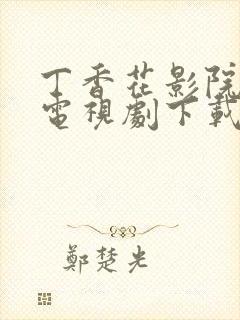 丁香花影院
電視劇下載
鄭楚光